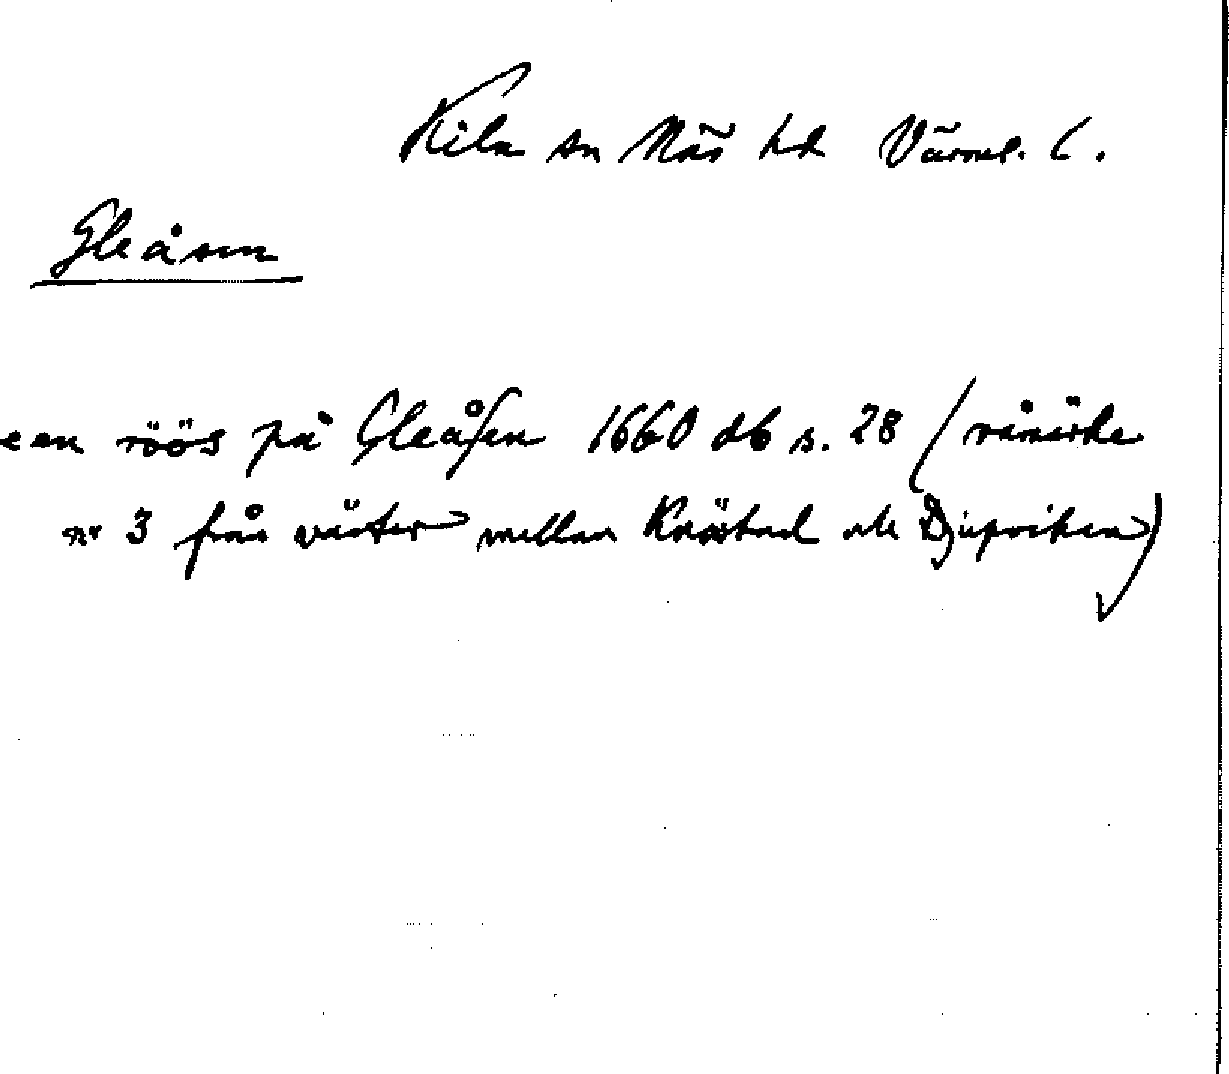 Kila sn Näs hd Värml. l.
Gleåsen
een röös på Gleåsen 1660 db s. 28 (råmärke
nr 3 från väster mellan Knöstad och Djupviken)